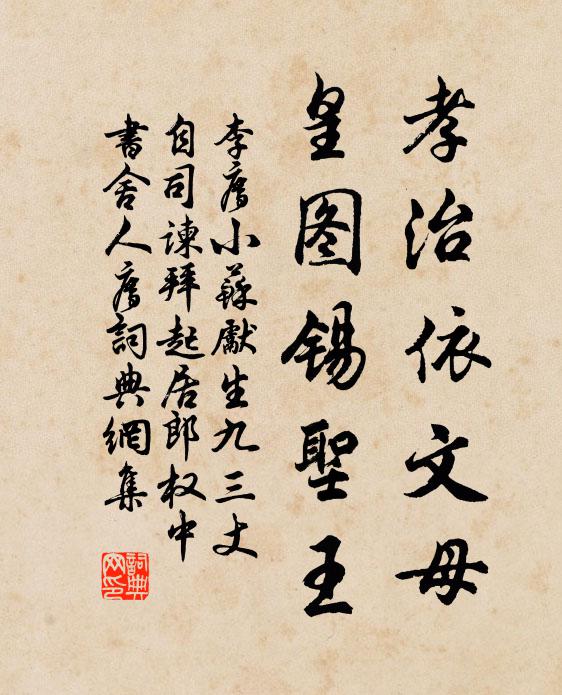 孝治依文母
皇图锡聖王
李廌小蘇獻生九三丈
自司諫拜起居郎权中
書舍人廌詞典網集
詞典
网印